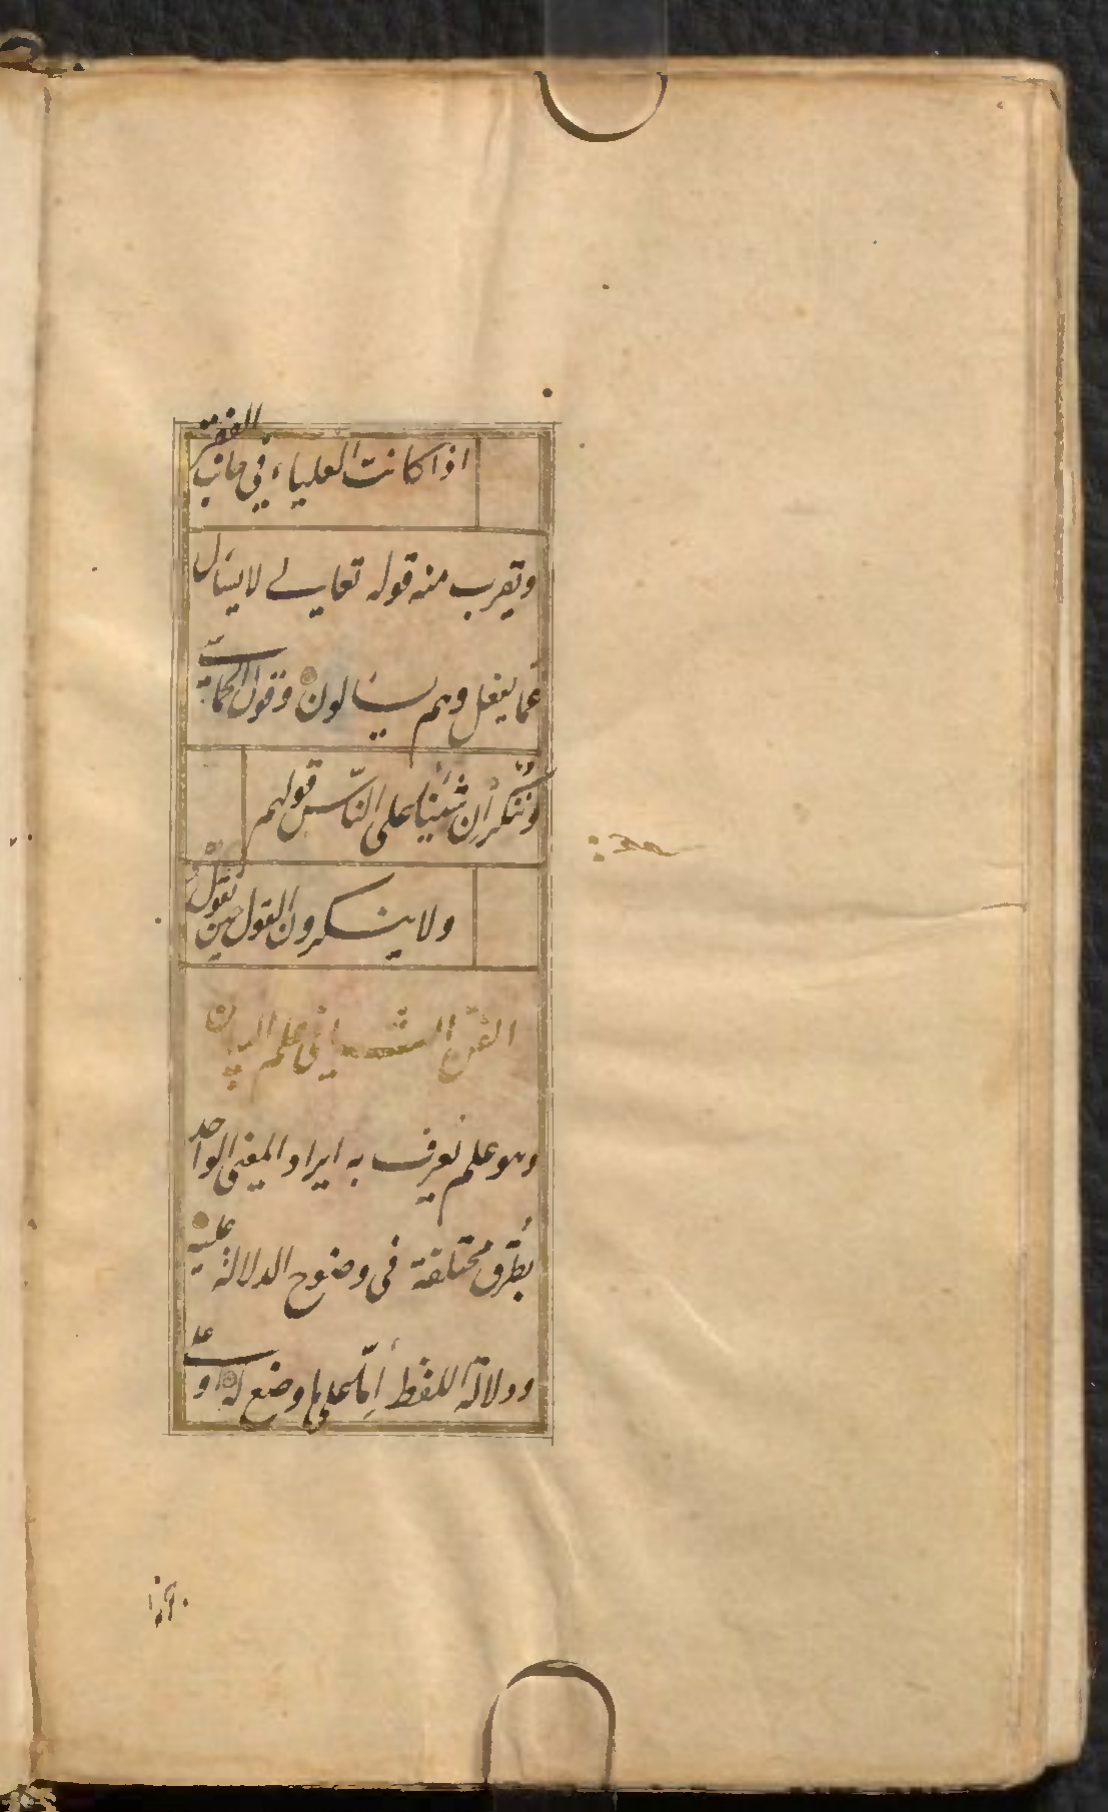 اذا كانت العلياء فى جانب الفقر
ويقرب منه قوله تعالى لا يسأل
عما يفعل وهم يسألون وقول الحماسى
وننكر ان شئنا على الناس قولهم
ولا ينكرون القول حين نقول
الفن الثانى علم البيان
وهو علم يعرف به ايراد المعنى الواحد
بطرق مختلفة فى وضوح الدلالة عليه
ودلالة اللفظ اما على ما وضع له او على